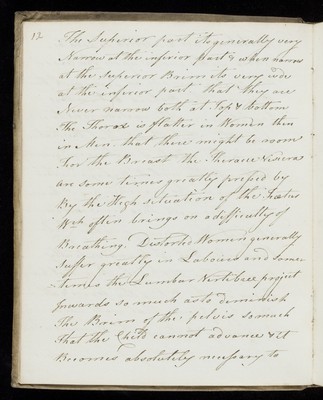 12
The Superior part it is generally very
Narrow at the inferior part & when narrow
at the Superior Brim its very wide
at the inferior part that they are
Never narrow both at Top & bottom
The Thorax is flatter in Women then
in Men, that there might be room
For the Breast the Thoracic Viscera
are some times greatly pressed by
By the High situation of the Foetus
Wch often brings on a difficulty of
Breathing. Distorted Women generally
Suffer greatly in Labours and some-
times the Lumbar Vertibece project
Inwards so much as to deminish
The Brim of the pelvis so much
That the Child cannot advance & it
Becomes absolutely necessary to